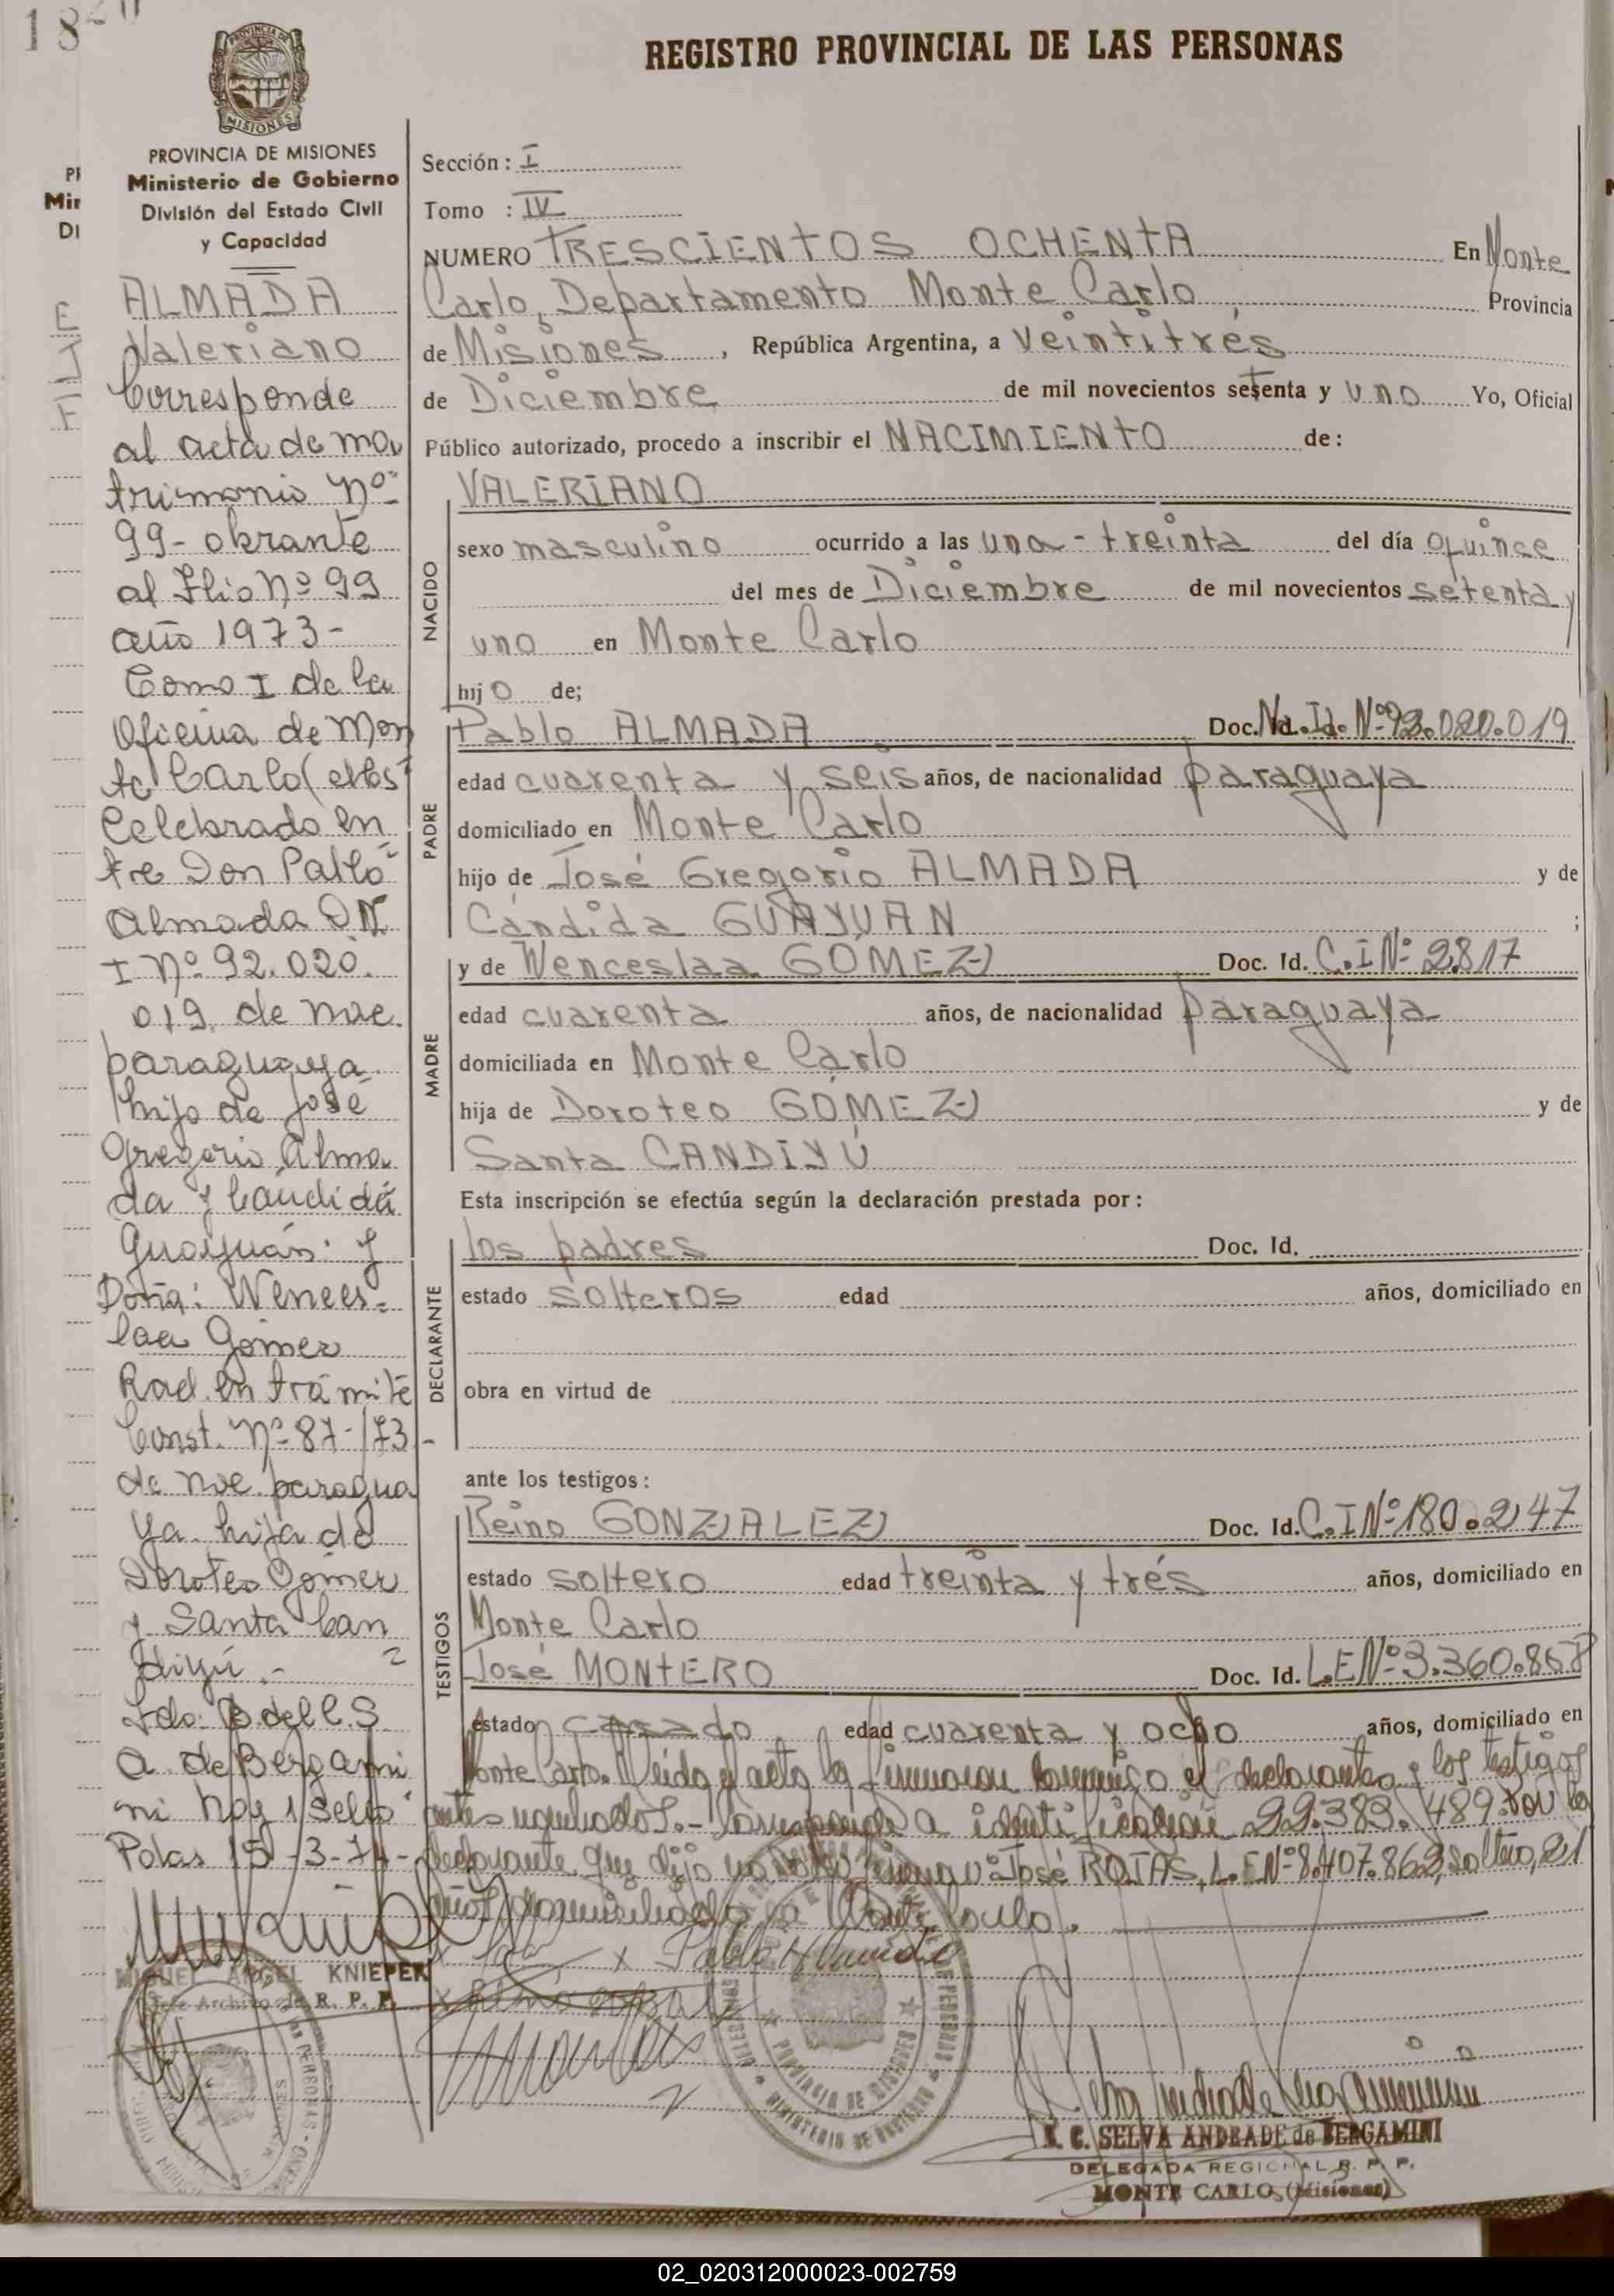 REGISTRO PROVINCIAL DE LAS PERSONAS
MISIONES
PROVINCIA DE MISIONES
Ministerio de Gobierno
División del Estado Civil
y Capacidad
ALMADA
Valeriano
Corresponde
al acta de ma
trimonio Nº
99- obrante
al Flio Nº 99
año 1973-
Tomo I de la
Oficina de Mon
te Carlo
Celebrado en
tre Don Pablo
Almada D.N.
I Nº 92.020.
019. de nac.
paraguaya.
hijo de José
Gregorio Alma
da y Cándida
Guayuán: y
Doña: Wences=
laa Gómez
Rad. en trámite
Const. Nº 87-/73-
de nac. paragua
ya. hija de
Doroteo Gómez
y Santa Can
diyú.-
Fdo: B. del C. S
A. de Bergami
ni hay 1 sello
Pdas 15-3-74-
MIGUEL ANGEL KNIEPER
Jefe Archivo de R. P. P.
Sección: I
Tomo : IV
NUMERO TRESCIENTOS OCHENTA En Monte
Carlo, Departamento Monte Carlo Provincia
de Misiones, República Argentina, a veintitrés
de Diciembre de mil novecientos setenta y uno Yo, Oficial
Público autorizado, procedo a inscribir el NACIMIENTO de:
NACIDO
VALERIANO
sexo masculino ocurrido a las una-treinta del día quince
del mes de Diciembre de mil novecientos setenta y
uno en Monte Carlo
hijo de;
PADRE
Pablo ALMADA Doc. Nd. Id. Nº 92.020.019
edad cuarenta y seis años, de nacionalidad paraguaya
domiciliado en Monte Carlo
hijo de José Gregorio ALMADA y de
Cándida GUAYUAN ;
MADRE
y de Wenceslaa GÓMEZ Doc. Id. C.I Nº 2.817
edad cuarenta años, de nacionalidad paraguaya
domiciliada en Monte Carlo
hija de Doroteo GÓMEZ y de
Santa CANDIYÚ
Esta inscripción se efectúa según la declaración prestada por:
DECLARANTE
los padres Doc. Id.
estado solteros edad años, domiciliado en
obra en virtud de
ante los testigos:
TESTIGOS
Reino GONZALEZ Doc. Id. C.I Nº 180.247
estado soltero edad treinta y trés años, domiciliado en
Monte Carlo
José MONTERO Doc. Id. L.E Nº 3.360.858
estado casado edad cuarenta y ocho años, domiciliado en
Monte Carlo. Leída el acta la firmaron conmigo el declarante y los testigos
antes nombrados.- Corresponde a identificación 22.383.489. Por la
declarante que dijo no firmar: José ROJAS, L.E Nº 8.407.862, soltero, 21
años, domiciliado en Monte Carlo.
Pablo Almada
S. C. SELVA ANDRADE de BERGAMINI
DELEGADA REGIONAL R. P. P.
MONTE CARLO, (Misiones)
02_020312000023-002759